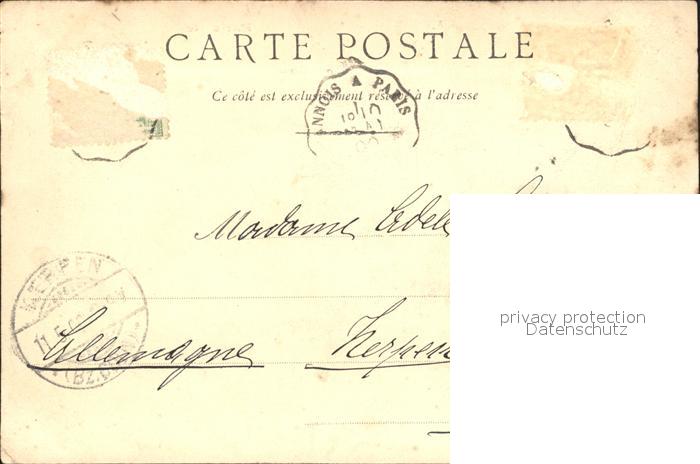 CARTE POSTALE
Ce côté est exclusivement réservé à l'adresse
A PARIS
Madame
KERPEN
Allemagne
Kerpen
privacy protection
Datenschutz